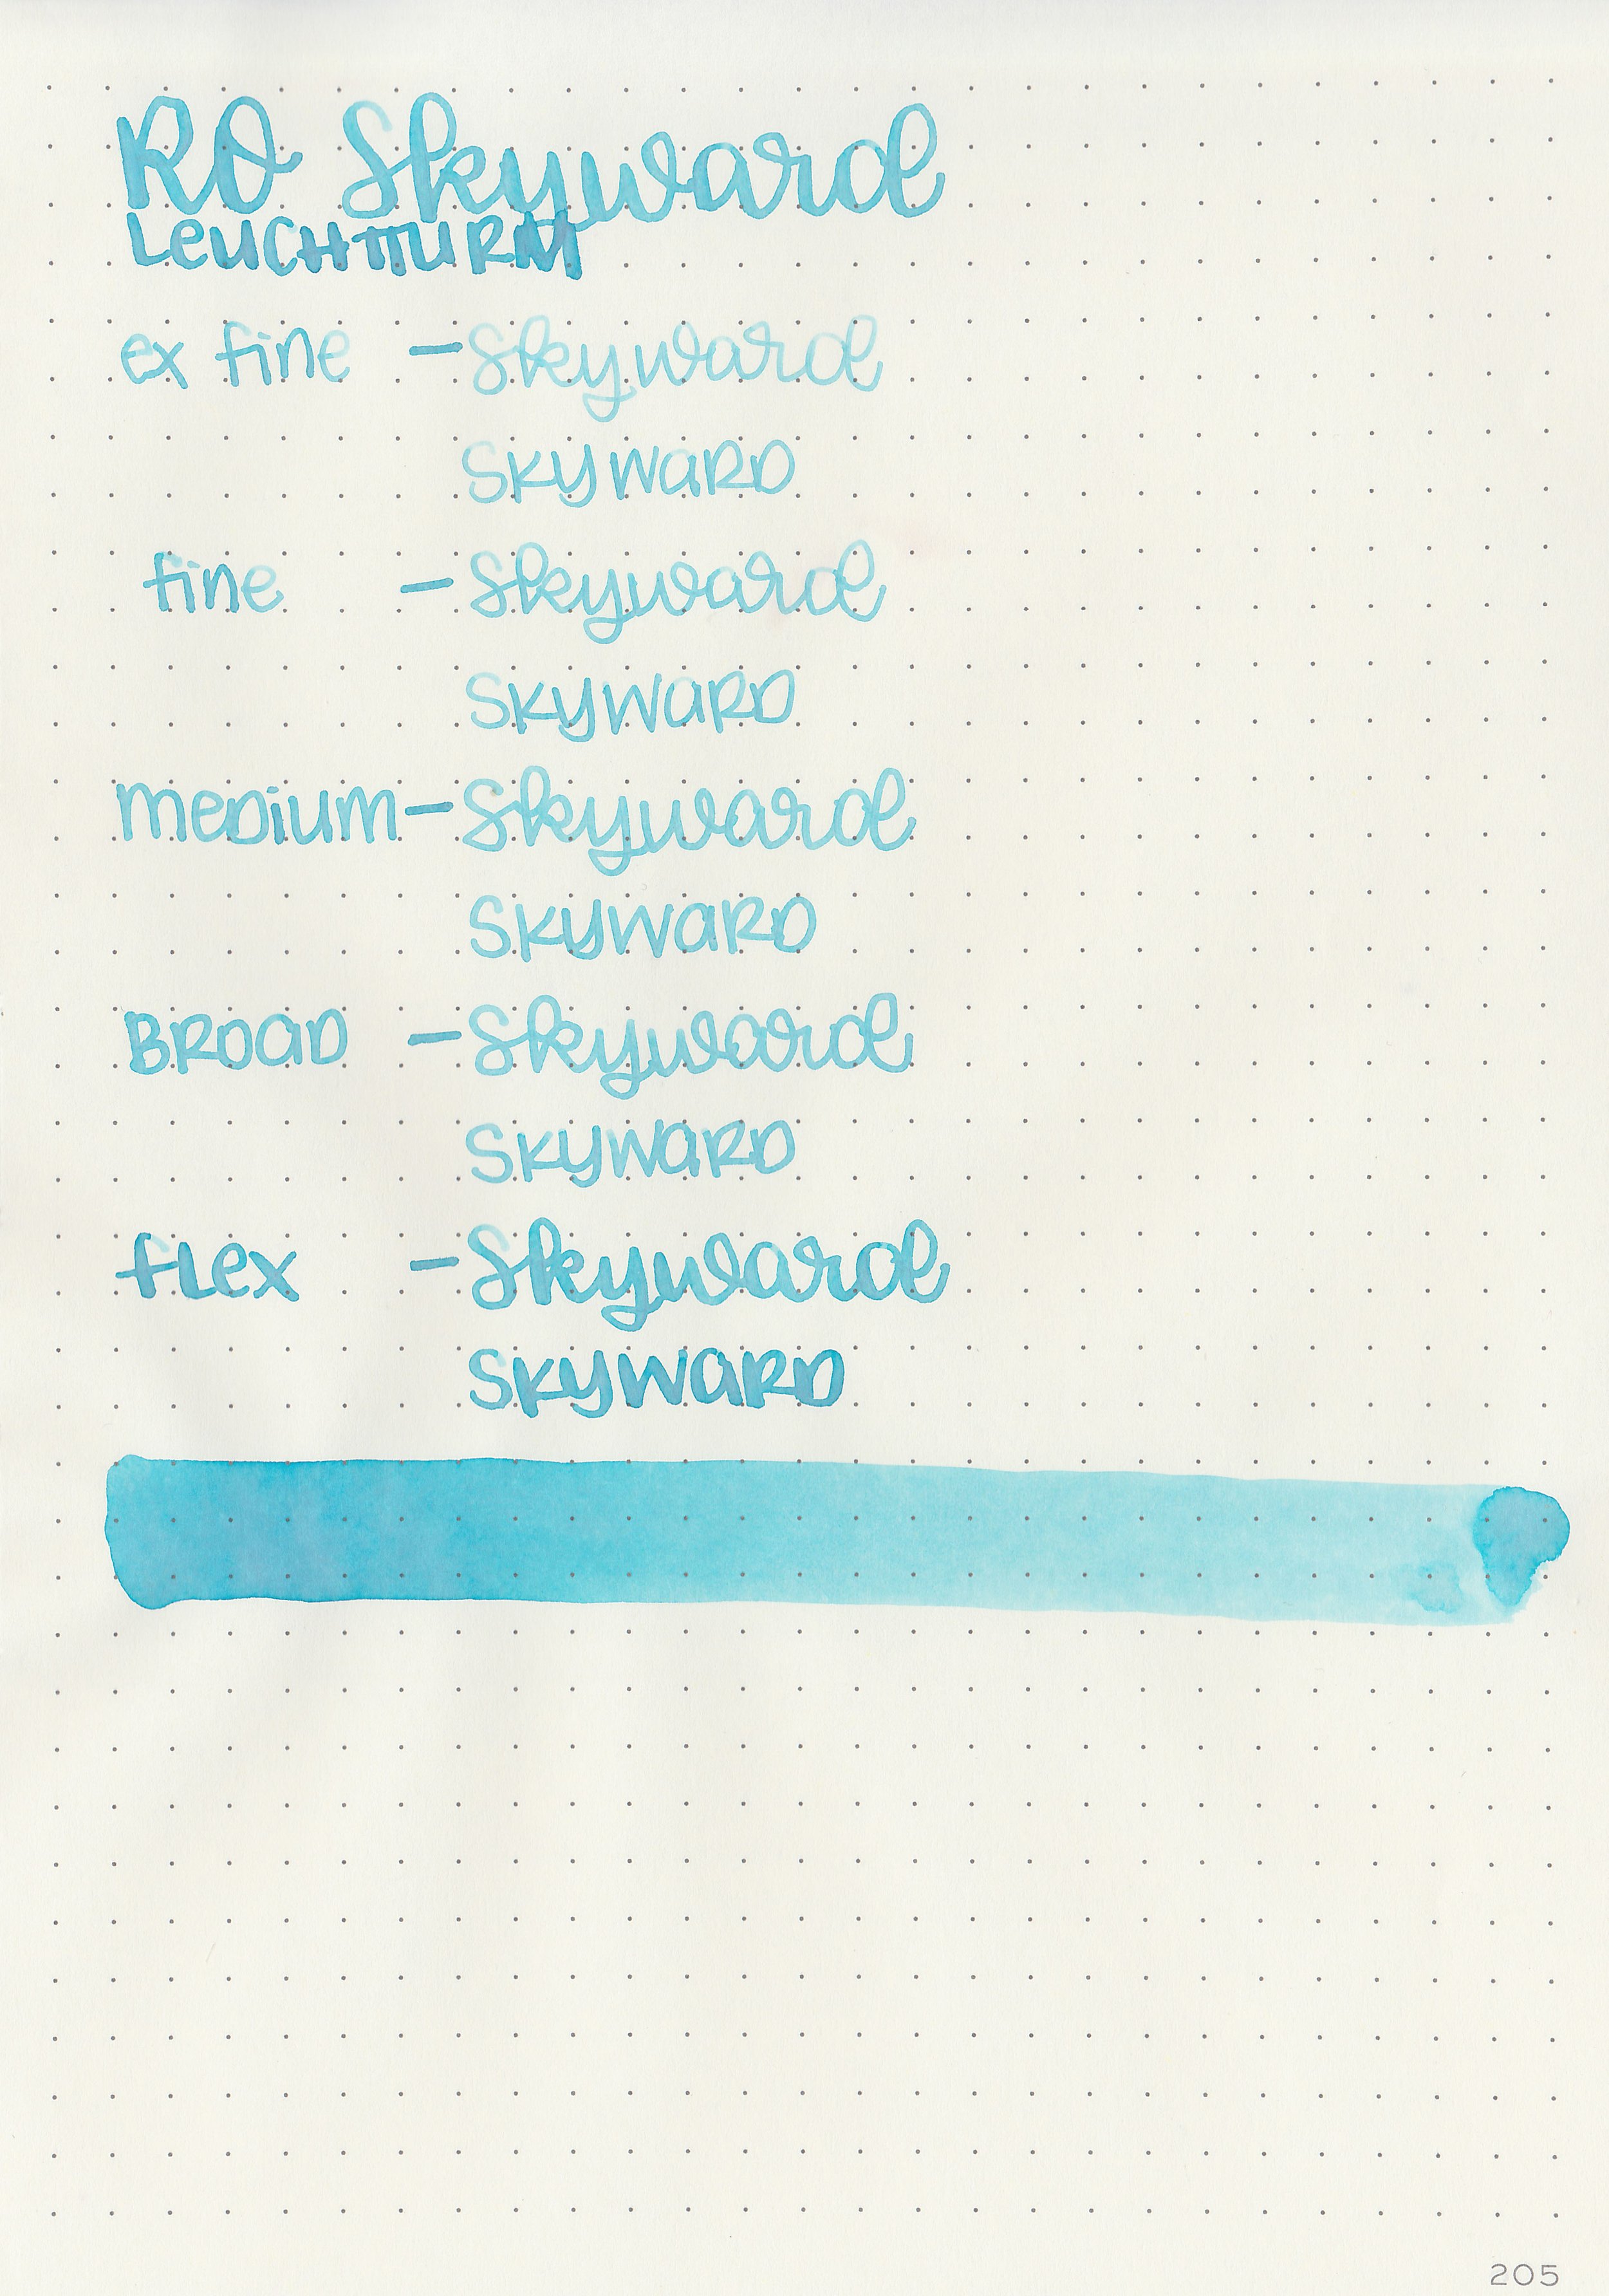 RO Skyward
LEUCHTTURM
ex fine - Skyward
SKYWARD
fine - Skyward
SKYWARD
meDium - Skyward
SKYWARD
BROAD - Skyward
SKYWARD
fLex - Skyward
SKYWARD
205